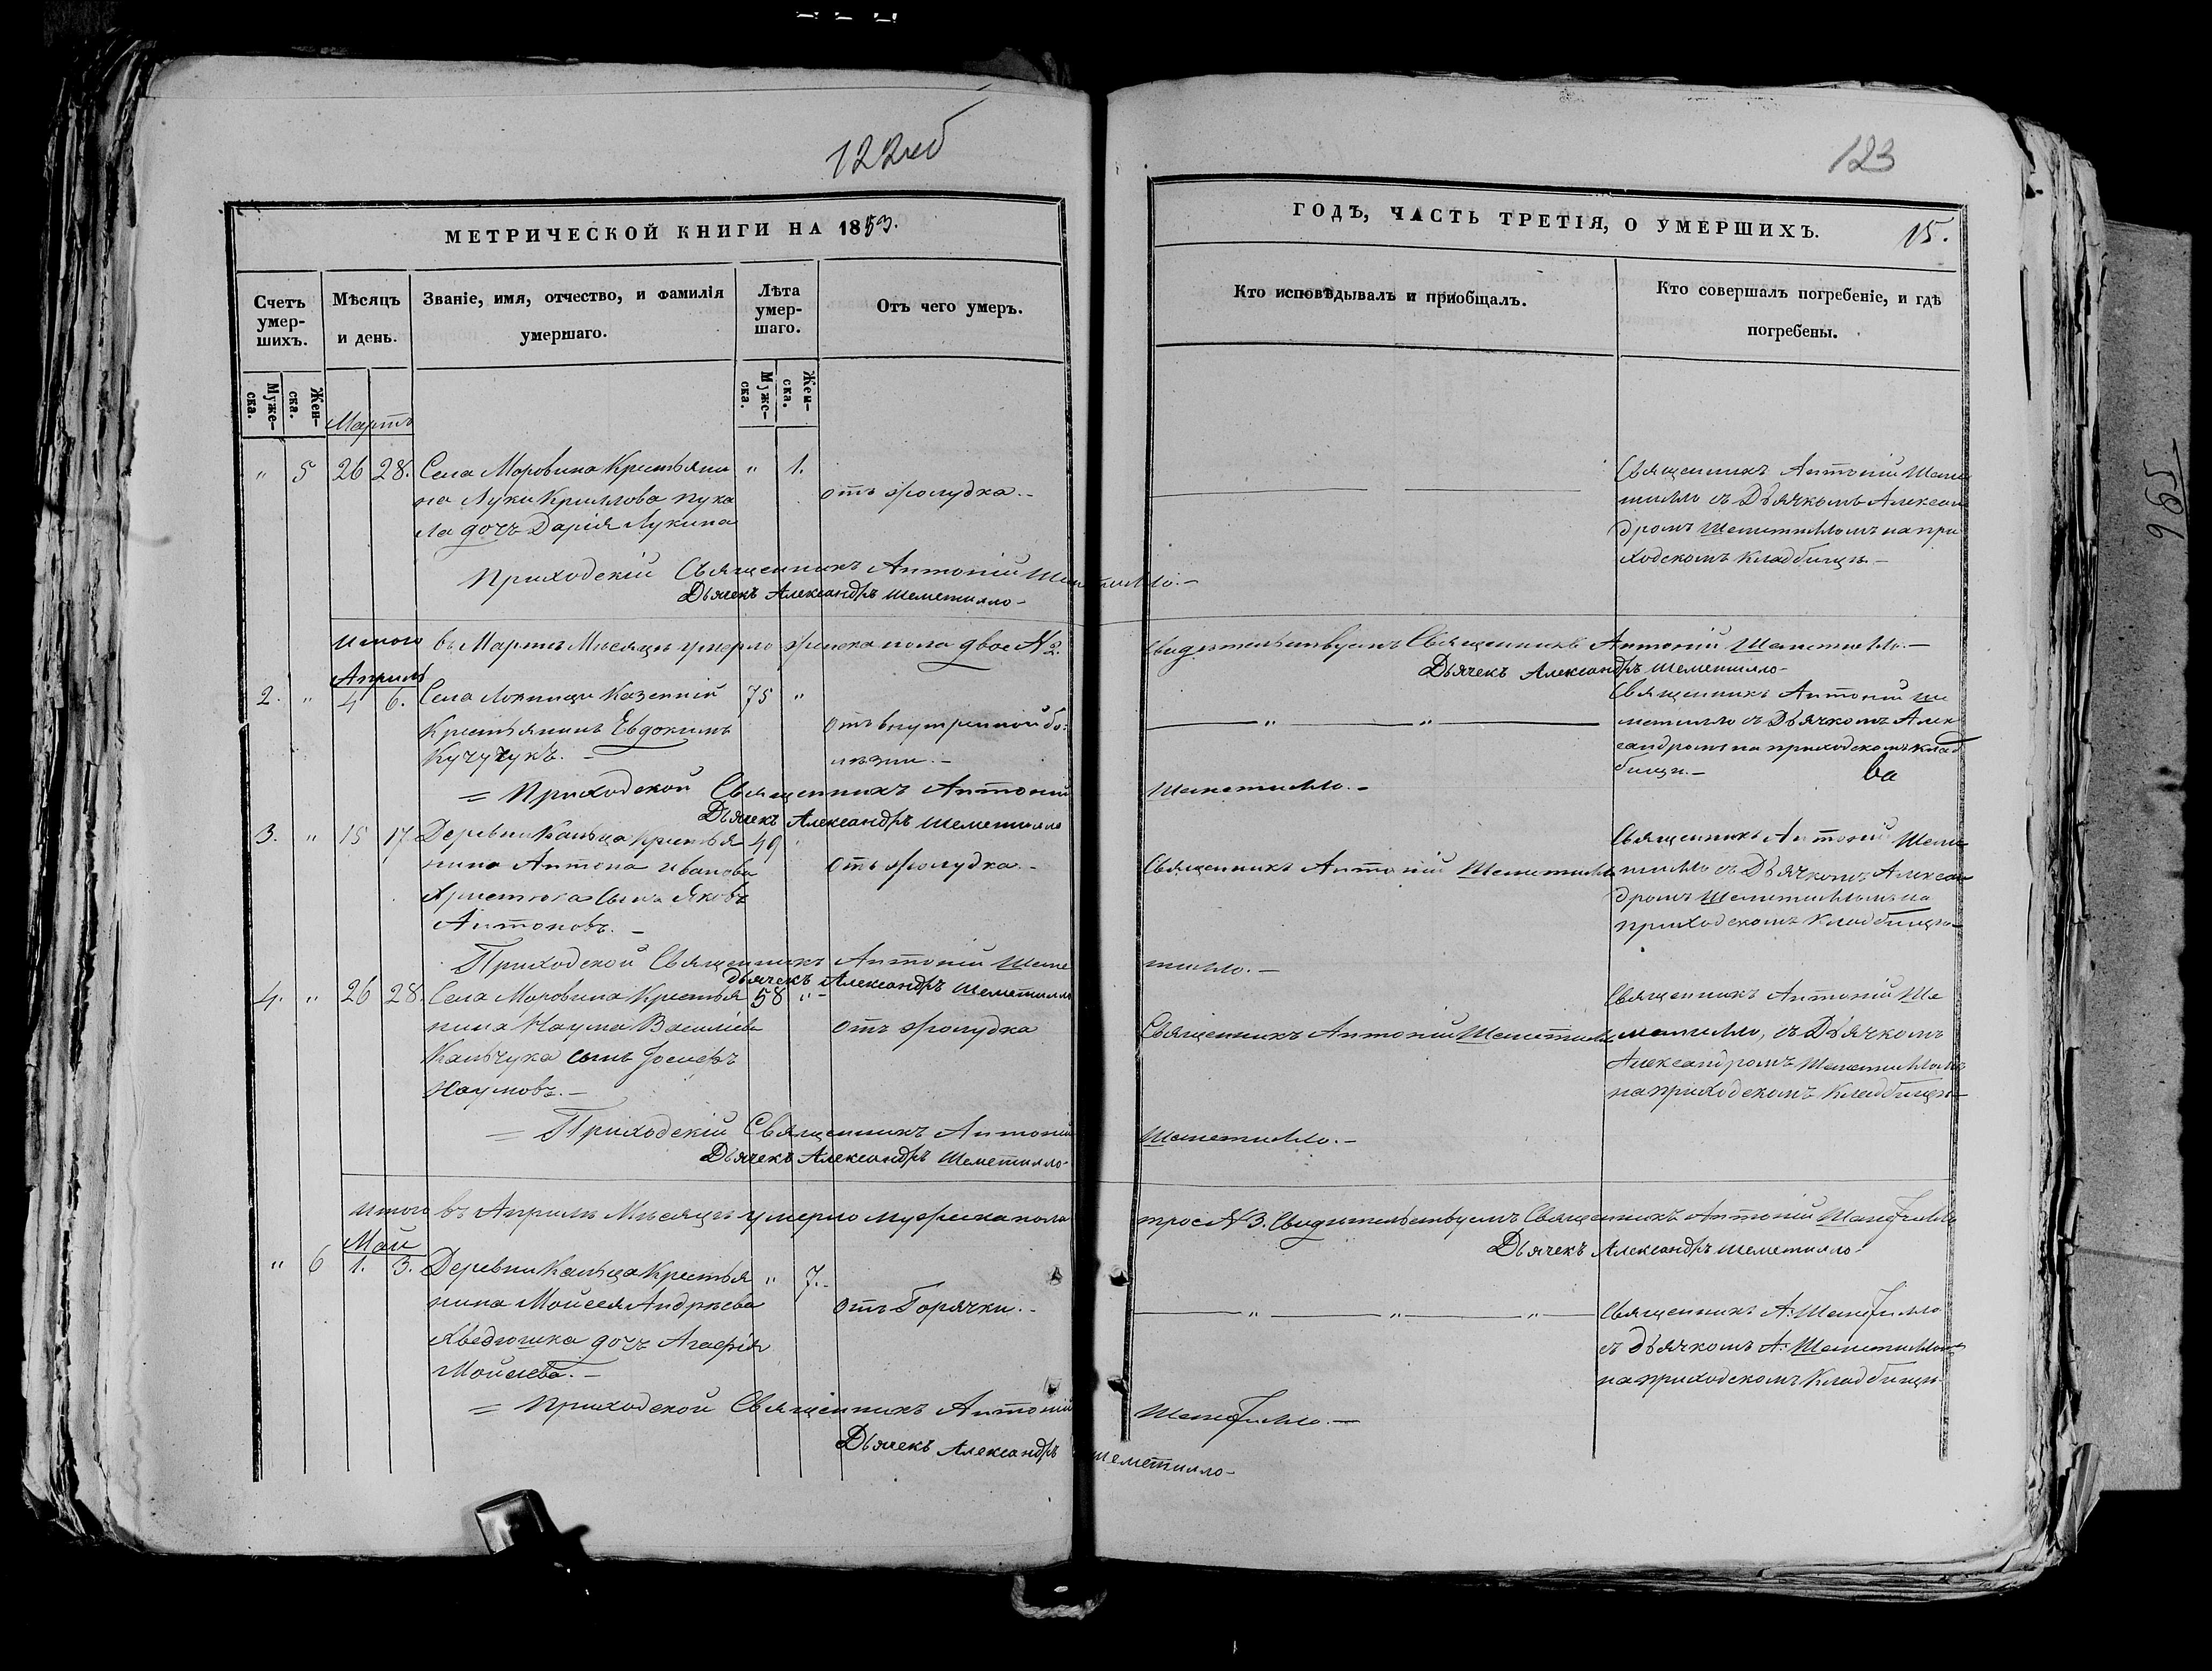 122об
МЕТРИЧЕСКОЙ КНИГИ НА 1853.
Счетъ умер-шихъ.
Муже-ска.
Жен-ска.
Мѣсяцъ и день.
Званіе, имя, отчество, и фамилія умершаго.
Лѣта умер-шаго.
Мужс-ска.
Жен-ска.
Отъ чего умеръ.
Мартъ
" 5 26 28. Села Моровина Крестьяни " 1.
на Луки Кириллова отъ желудка.-
ла дочь Дарія Лукина
Приходскій Священникъ Антоній Шеметилло.-
Дьячекъ Александръ Шеметилло-
Итого въ Мартѣ Мѣсяцѣ умерло женска пола двое № 2.
Апрѣль
2. " 4 6. Села Казенній 75 "
Крестьянинъ Евдокимъ отъ внутренной бо-
Кучучукъ.- лѣзни.-
= Приходской Священникъ Антоній
Дьячекъ Александръ Шеметилло
3. " 15 17 Деревни Кальца Крестья 49 "
нина Антона Иванова отъ желудка.-
сынъ Яковъ
Антоновъ.-
Приходской Священникъ Антоній Шеме
Дьячекъ Александръ Шеметилло
4. " 26 28. Села Моровина Крестья 58 "-
нина Наума Василіева отъ желудка
Кальчука сынъ Іосифъ
Наумовъ.-
= Приходскій Священникъ Антоній
Дьячекъ Александръ Шеметилло-
Итого въ Апрѣлѣ Мѣсяцѣ умерло мужеска пола
Май
" 6 1. 3. Деревни Кальца Крестья " 7.-
нина Мойсея Андреева отъ Горячки.-
Хведюшка дочь Агафія
Мойсева.-
= Приходской Священникъ Антоній
Дьячекъ Александръ Шеметилло-
123
ГОДЪ, ЧАСТЬ ТРЕТІЯ, О УМЕРШИХЪ. 15.
Кто исповѣдывалъ и пріобщалъ.
Кто совершалъ погребеніе, и гдѣ погребены.
Священникъ Антоній Шеме
тилло съ Дьячкомъ Алексан
дромъ Шеметилломъ на при
ходскомъ кладбищѣ.-
Свидѣтельствуемъ Священникъ Антоній Шеметилло.-
Дьячекъ Александръ Шеметилло-
Священникъ Антоній Ше
" " метилло съ Дьячкомъ Алек
сандромъ на приходскомъ клад
бищѣ.-
Шеметилло.-
Священникъ Антоній Шеме
Священникъ Антоній Шеметилло тилло съ Дьячкомъ Алексан
дромъ Шеметилломъ на
приходскомъ кладбищѣ-
тилло.-
Священникъ Антоній Ше
Священникъ Антоній Шеметилло метилло, съ Дьячкомъ
Александромъ Шеметилломъ
на приходскомъ кладбищѣ-
Шеметилло.-
трое № 3. Свидѣтельствуемъ Священникъ Антоній Шеметилло
Дьячекъ Александръ Шеметилло-
" " " Священникъ А: Шеметилло
съ дьячкомъ А: Шеметилломъ
на приходскомъ кладбищѣ
Шеметилло.-
965